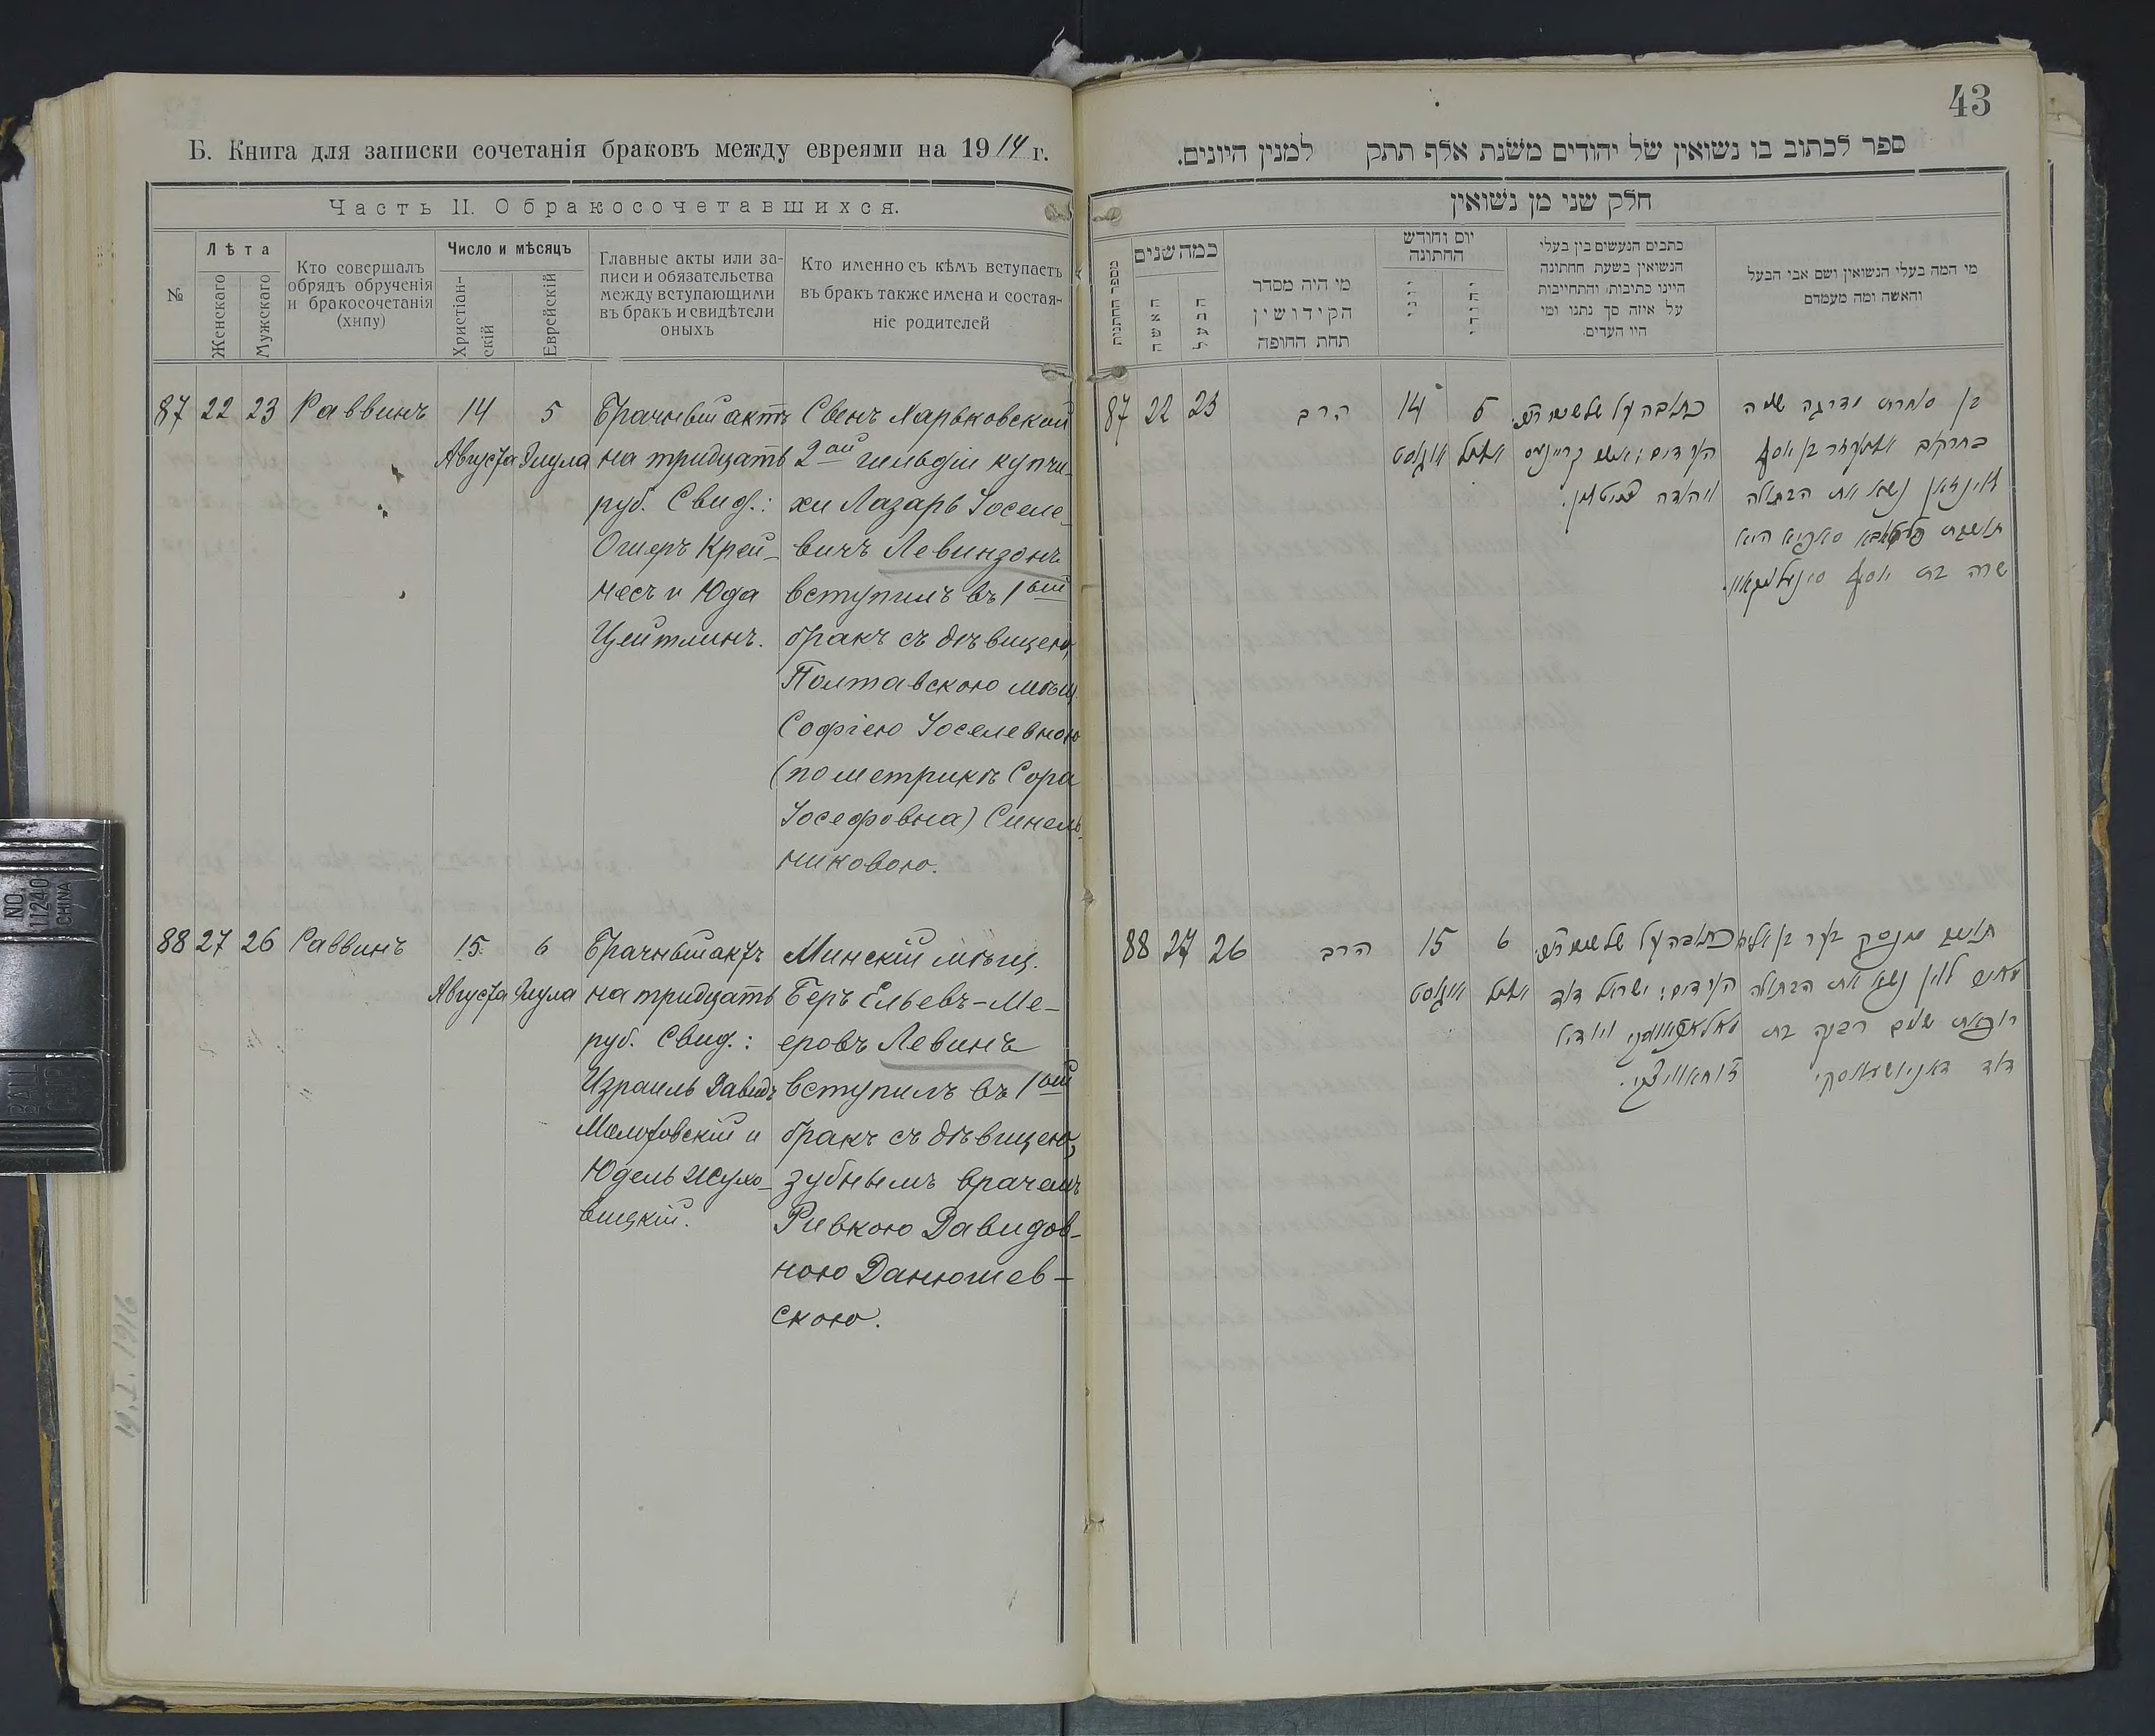 Б. Книга для записки сочетанія браковъ между евреями на 1914 г.
Часть II. О бракосочетавшихся.
№
Лѣта
Женскаго
Мужскаго
Кто совершалъ
обрядъ обрученія
и бракосочетанія
(хипу)
Число и мѣсяцъ
Христіан-
скій
Еврейскій
Главные акты или за-
писи и обязательства
между вступающими
въ бракъ и свидѣтели
оныхъ
Кто именно съ кѣмъ вступаетъ
въ бракъ также имена и состоя-
ніе родителей
87 22 23 Раввинъ
14
Августа
5
Элула
Брачный актъ
на тридцать
руб. Свид.:
Ошеръ Крей-
несъ и Юда
Цейтлинъ.
Сынъ Харьковской
2ой гильдіи купчи-
хи Лазарь Іоселе-
вичъ Левинзонъ
вступилъ въ 1ый
бракъ съ дѣвицею,
Полтавскою мѣщ.
Софіею Іоселевною
(по метрикѣ Сора
Іосефовна) Синель-
никовою.
88 27 26 Раввинъ
15
Августа
6
Элула
Брачный актъ
на тридцать
руб. Свид.:
Израиль Давидъ
и
Юдель
Минскій мѣщ.
Беръ Ельевъ-Ме-
еровъ Левинъ
вступилъ въ 1ый
бракъ съ дѣвицею,
зубнымъ врачемъ
Ривкою Давидов-
ною Данюшев-
скою.
19.I.1916
NO.
11240
CHINA
43
ספר לכתוב בו נשואין של יהודים משנת אלף תתק למנין היונים.
חלק שני מן נשואין
מספר החתונות
כמה שנים
האשה
הבעל
מי היה מסדר
הקידושין
תחת החופה
יום וחודש
החתונה
יוני
יהודי
כתבים הנעשים בין בעלי
הנשואין בשעת החתונה
היינו כתיבות והתחייבות
על איזה סך נתנו ומי
היו העדים
מי המה בעלי הנשואין ושם אבי הבעל
והאשה ומה מעמדם
87 22 23 הרב
14
אוגוסט
5
אלול
כתובה על שלשים רו״כ
העדים: אשר קריינעס
ויהודה צייטלין.
בן סוחרת מדרגה שניה
בחרקוב אלעזר בן יוסף
לוינזאן נשא את הבתולה
שרה בת יוסף
88 27 26 הרב
15
אוגוסט
6
אלול
כתובה על שלשים רו״כ
העדים: ישראל דוד
ויודיל
תושב מינסק בער בן אליה
לוין נשא את הבתולה
רופאת שנים רבקה בת
דוד דאניושעווסקי